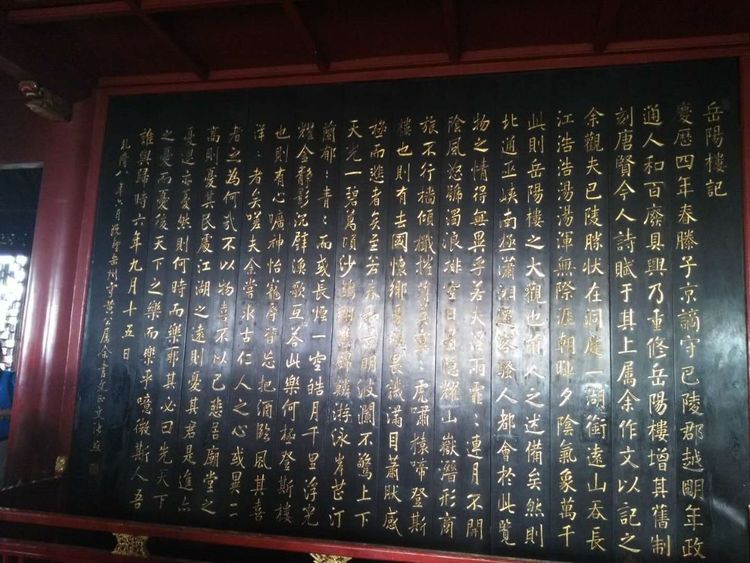 岳陽樓記
慶歷四年春滕子京謫守巴陵郡越明年政
通人和百廢具興乃重修岳陽樓增其舊制
刻唐賢今人詩賦于其上屬余作文以記之
余觀夫巴陵勝狀在洞庭一湖銜遠山吞長
江浩浩湯湯渾無際涯朝暉夕陰氣象萬千
此則岳陽樓之大觀也前人之述備矣然則
北通巫峽南極瀟湘遷客騷人都會於此覽
物之情得無異乎若夫淫雨霏〻連月不開
陰風怒號濁浪排空日星隱耀山嶽潛形商
旅不行檣傾檝摧薄暮冥〻虎嘯猿啼登斯
樓也則有去國懷鄉憂讒畏譏滿目蕭然感
極而悲者矣至若春和景明波瀾不驚上下
天光一碧萬頃沙鷗翔集錦鱗游泳岸芷汀
蘭郁〻青〻而或長煙一空皓月千里浮光
耀金靜影沉璧漁歌互答此樂何極登斯樓
也則有心曠神怡寵辱皆忘把酒臨風其喜
洋〻者矣嗟夫余嘗求古仁人之心或異二
者之為何哉不以物喜不以己悲居廟堂之
高則憂其民處江湖之遠則憂其君是進亦
憂退亦憂然則何時而樂耶其必曰先天下
之憂而憂後天下之樂而樂乎噫微斯人吾
誰與歸時六年九月十五日
乾隆八年六月岳州守黃公屬余書文正